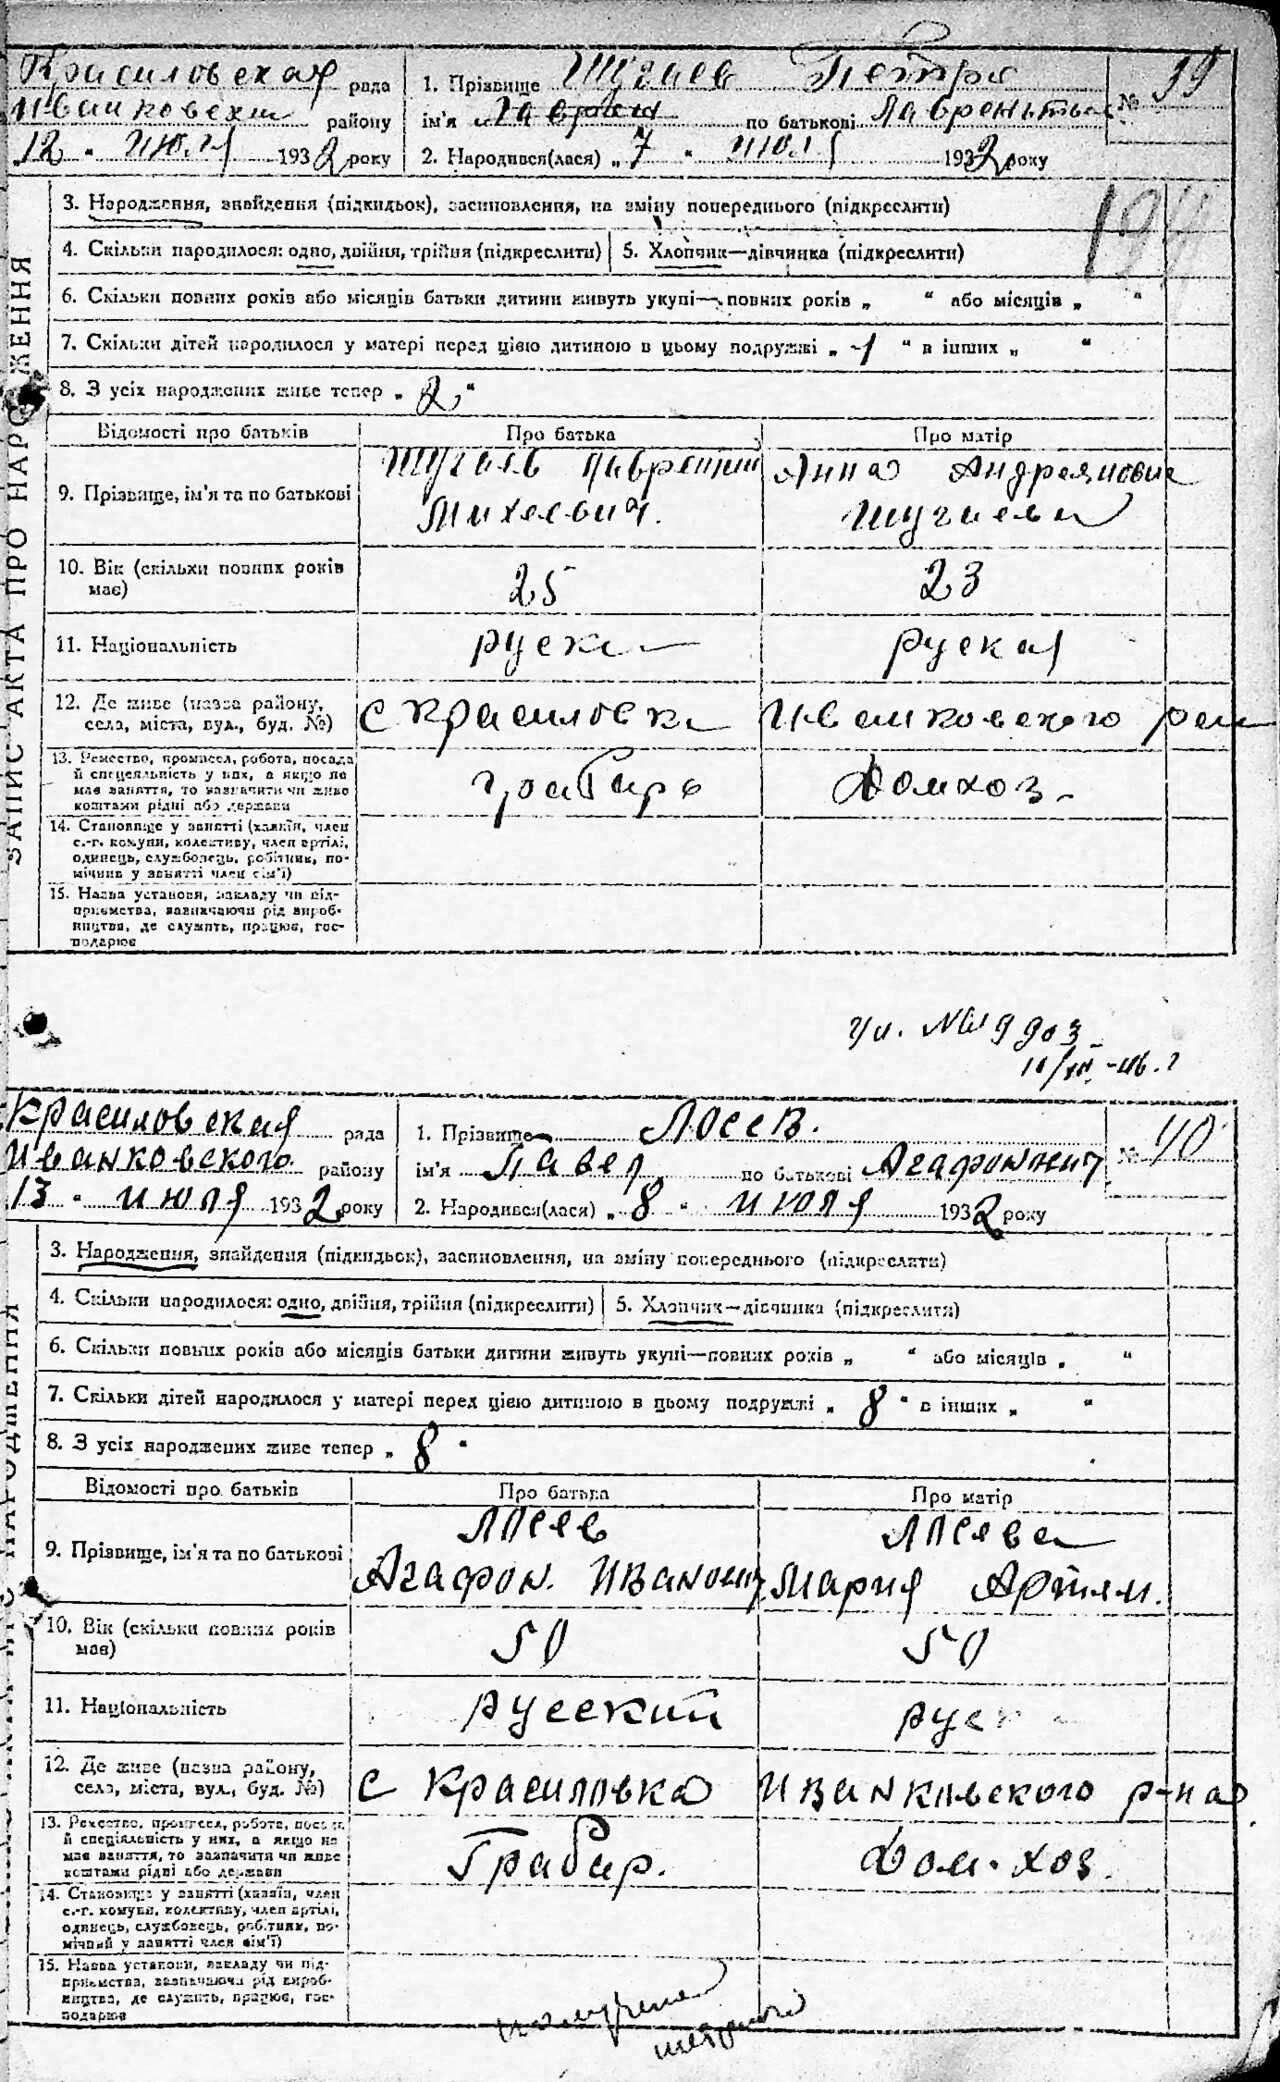 Красиловская рада
Иванковск району
"12" июля 1932 року
1. Прізвище Шугаев Петро № 39
ім'я по батькові Лавреньтье
2. Народився(лася) "7" июля 1932 року
3. Народження, знайдення (підкидьок), засиновлення, на зміну попереднього (підкреслити)
4. Скільки народилося: одно, двійня, трійня (підкреслити) 5. Хлопчик—дівчинка (підкреслити)
6. Скільки повних років або місяців батьки дитини живуть укупі—повних років „ “ або місяців „ “
7. Скільки дітей народилося у матері перед цією дитиною в цьому подружжі „ 1 “ в інших „ “
8. З усіх народжених живе тепер „ 2 “
Відомості про батьків Про батька Про матір
9. Прізвище, ім'я та по батькові
Шугаев Лаврентий
Михеевич.
Анна Андреяновна
Шугаева
10. Вік (скільки повних років має) 25 23
11. Національність руски руская
12. Де живе (назва району, села, міста, вул., буд. №) с Красиловка Иванковского
13. Ремество, промисел, робота, посада
й спеціяльність у них, а якщо не
має заняття, то зазначити чи живе
коштами рідні або держави
грабарь Домхоз.
14. Становище у занятті (хазяїн, член
с.-г. комуни, колективу, член артілі,
одинець, службовець, робітник, по-
мічник у занятті член сім'ї)
15. Назва установи, закладу чи під-
приємства, зазначаючи рід вироб-
ництва, де служить, працює, гос-
подарює
ЗАПИС АКТА ПРО НАРОДЖЕННЯ
Красиловская рада
Иванковского району
13 " июля 1932 року
1. Прізвище Лосев. № 40
ім'я Павел по батькові Агафонович
2. Народився(лася) „ 8 “ июля 1932 року
3. Народження, знайдення (підкидьок), засиновлення, на зміну попереднього (підкреслити)
4. Скільки народилося: одно, двійня, трійня (підкреслити) 5. Хлопчик—дівчинка (підкреслити)
6. Скільки повних років або місяців батьки дитини живуть укупі—повних років „ “ або місяців „ “
7. Скільки дітей народилося у матері перед цією дитиною в цьому подружжі „ 8 “ в інших „ “
8. З усіх народжених живе тепер „ 8 “
Відомості про батьків Про батька Про матір
9. Прізвище, ім'я та по батькові
Лосев
Агафон. Иванович
Лосева
Мария Артем.
10. Вік (скільки повних років має) 50 50
11. Національність русский руск
12. Де живе (назва району, села, міста, вул., буд. №) с Красиловка Иванковского р-на
13. Ремество, промисел, робота, посада
й спеціяльність у них, а якщо не
має заняття, то зазначити чи живе
коштами рідні або держави
Грабар. Дом. хоз.
14. Становище у занятті (хазяїн, член
с.-г. комуни, колективу, член артілі,
одинець, службовець, робітник, по-
мічний у занятті член сім'ї)
15. Назва установи, закладу чи під-
приємства, зазначаючи рід вироб-
ництва, де служить, працює, гос-
подарює